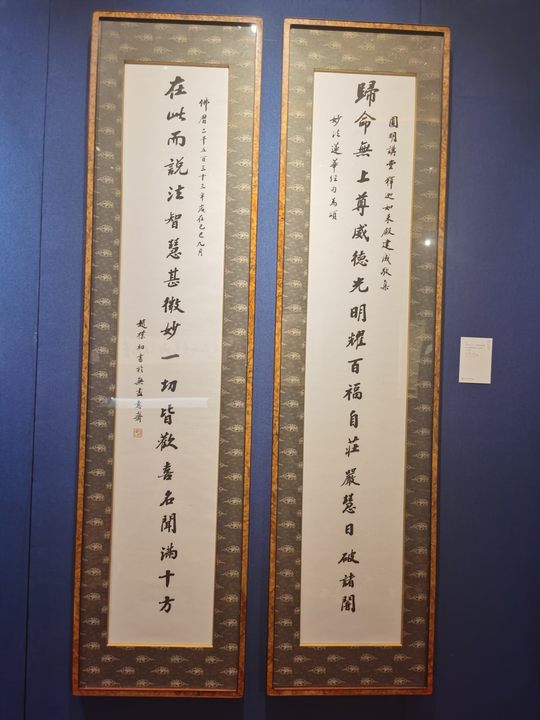 圓明講堂 釋迦如來殿建成敬集
歸命無上尊威德光明耀百福自莊嚴慧日破諸闇
妙法蓮華經句為頌
佛曆二千五百三十三年歲在己巳九月
在此而說法智慧甚微妙一切皆歡喜名聞滿十方
趙樸初書於無盡意齋